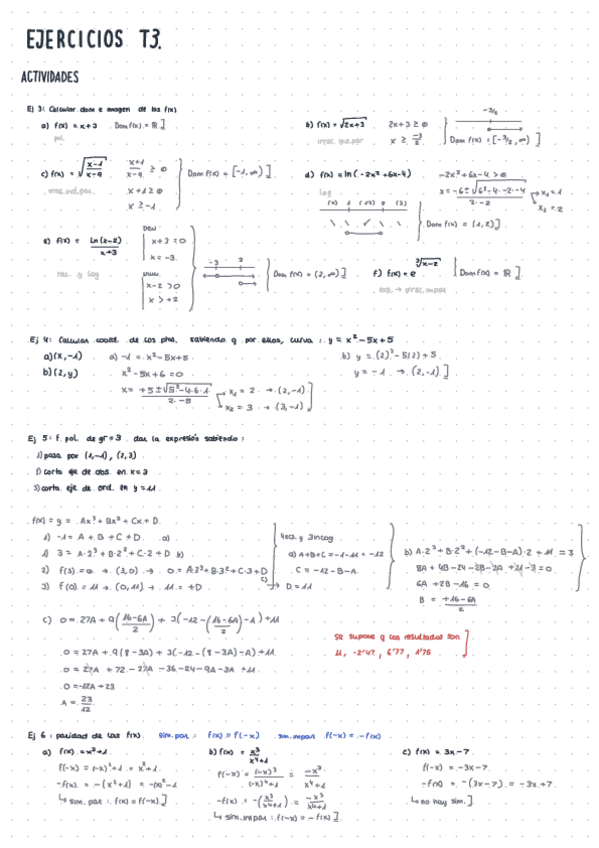 EJERCICIOS T3.
ACTIVIDADES
Ej 3: Calcular dom e imagen de las f(x)
a) f(x) = x+3 Dom f(x) = ℝ ]
pol.
b) f(x) = √(2x+3) 2x+3 ≥ 0 -3/2
irrac. ind. par x ≥ -3/2 Dom f(x) = [-3/2, ∞) ]
c) f(x) = √((x-1)/(x-9)) (x+1)/(x-9) ≥ 0 Dom f(x) = [-1, ∞) ]
irrac. ind. par x+1 ≥ 0
x ≥ -1
d) f(x) = ln(-2x²+6x-4) -2x²+6x-4 > 0
log x = (-6±√(6²-4·-2·-4))/(2·-2) x₁=1
x₂=2
1 2
Dom f(x) = (1,2) ]
e) f(x) = ln(x-2)/(x+3)
x+3 = 0
x = -3
-3 2
x-2 > 0
x > +2
Dom f(x) = (2, ∞) ]
rac. y log
f) f(x) = e^∛(x-2) Dom f(x) = ℝ ]
exp. → irrac. impar
Ej 4: Calcular coord. de los ptos. sabiendo q por ellos, curva: y = x²-5x+5
a) (x,-1) a) -1 = x²-5x+5
b) (2,y) x²-5x+6=0
x = (+5±√(5²-4·6·1))/(2·-5) x₁ = 2 → (2,-1)
x₂ = 3 → (3,-1) ]
b) y = (2)²-5(2)+5
y = -1 → (2,-1) ]
Ej 5: f. pol. de gr=3 dar la expresión sabiendo:
1) pasa por (1,-1), (2,3)
2) corta eje de abs. en x=3
3) corta eje de ord. en y=11
f(x) = y = Ax³+Bx²+Cx+D
1) -1 = A+B+C+D a)
1) 3 = A·2³+B·2²+C·2+D b)
2) f(3)=0 → (3,0) → 0 = A·3³+B·3²+C·3+D c)
3) f(0)=11 → (0,11) → 11 = +D → D=11
4ecs. y 3incog
a) A+B+C = -1-11 = -12
C = -12-B-A
b) A·2³+B·2²+(-12-B-A)·2+11 = 3
8A+4B-24-2B-2A+11-3=0
6A+2B-16=0
B = (+16-6A)/2
c) 0 = 27A+9((16-6A)/2)+3(-12-((16-6A)/2)-A)+11
0 = 27A+9(8-3A)+3(-12-(8-3A)-A)+11
0 = 27A+72-27A-36-24-9A-3A+11
0 = -12A+23
A = 23/12
Se supone q los resultados son
11, -2'47, 6'77, 1'75
Ej 6: paridad de las f(x). sim. par: f(x) = f(-x) sim. impar f(-x) = -f(x)
a) f(x) = x²+1
f(-x) = (-x)²+1 = x²+1
-f(x) = -(x²+1) = -(x)²-1
↳ sim. par: f(x) = f(-x) ]
b) f(x) = x³/(x⁴+1)
f(-x) = (-x)³/((-x)⁴+1) = -x³/(x⁴+1)
-f(x) = -(x³/(x⁴+1)) = -x³/(x⁴+1)
↳ sim. impar: f(-x) = -f(x) ]
c) f(x) = 3x-7
f(-x) = -3x-7
-f(x) = -(3x-7) = -3x+7
↳ no hay sim. ]